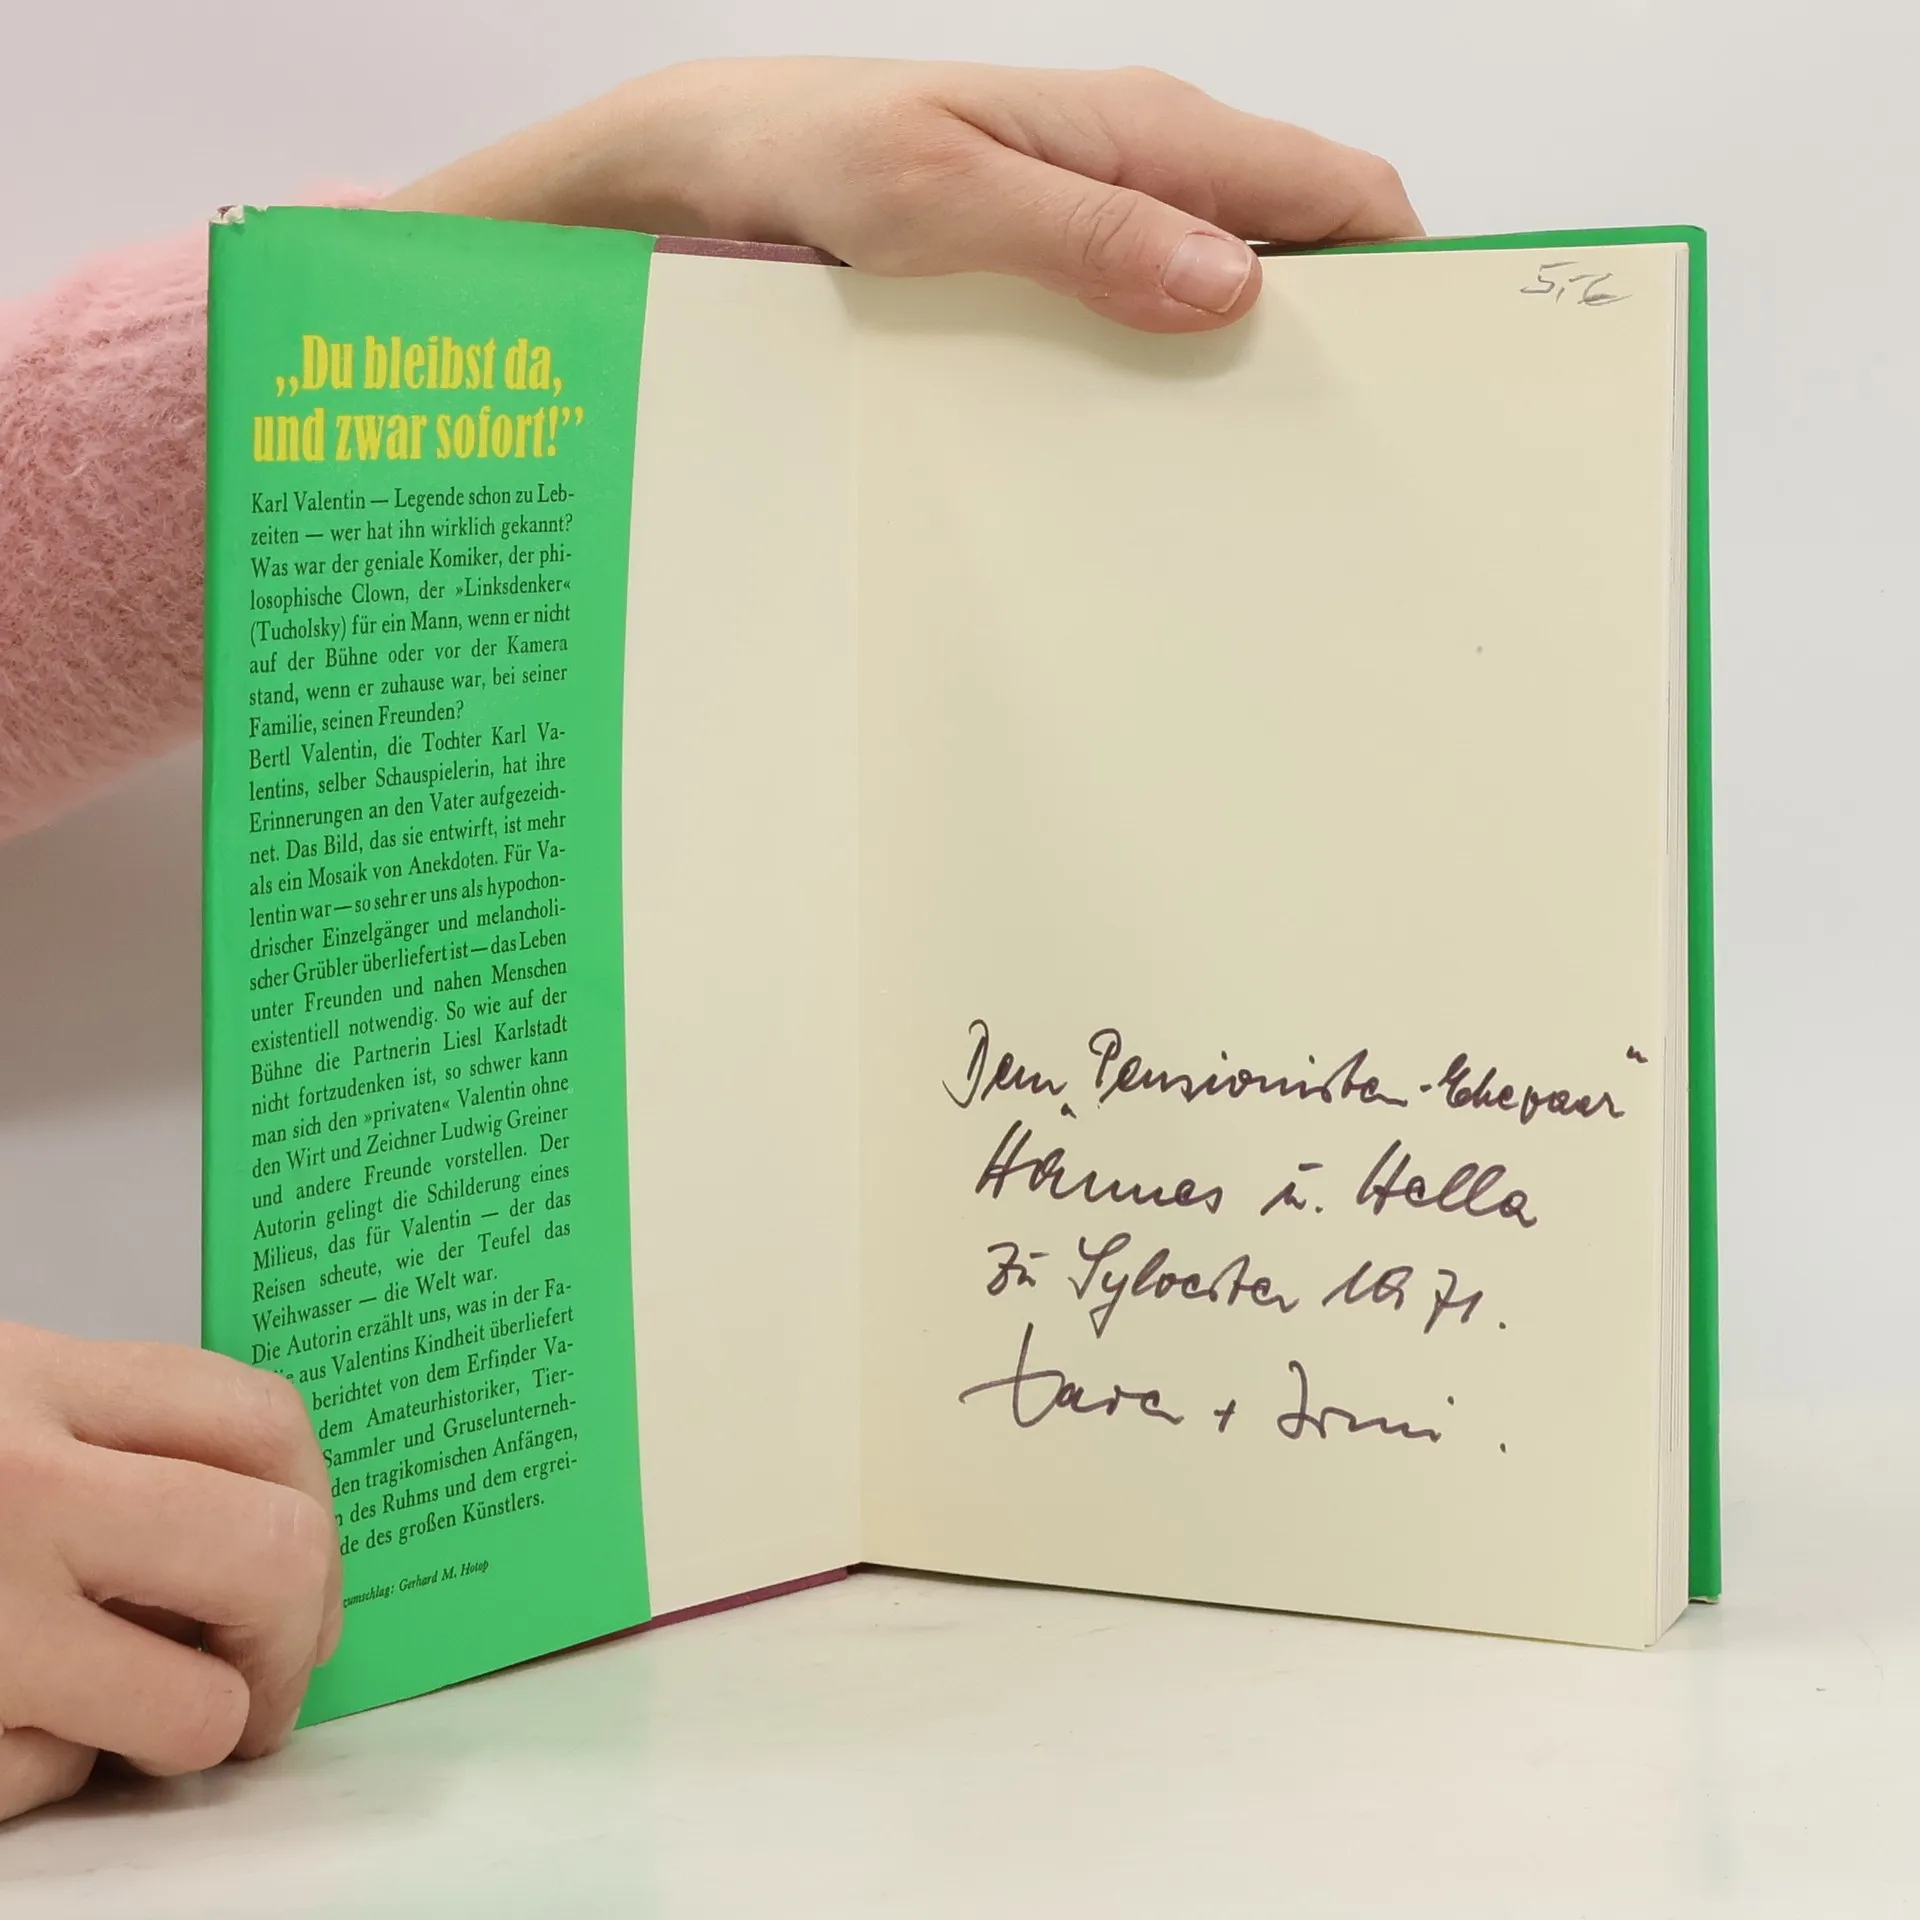 „Du bleibst da,
und zwar sofort!”
Karl Valentin — Legende schon zu Leb-
zeiten — wer hat ihn wirklich gekannt?
Was war der geniale Komiker, der phi-
losophische Clown, der »Linksdenker«
(Tucholsky) für ein Mann, wenn er nicht
auf der Bühne oder vor der Kamera
stand, wenn er zuhause war, bei seiner
Familie, seinen Freunden?
Bertl Valentin, die Tochter Karl Va-
lentins, selber Schauspielerin, hat ihre
Erinnerungen an den Vater aufgezeich-
net. Das Bild, das sie entwirft, ist mehr
als ein Mosaik von Anekdoten. Für Va-
lentin war — so sehr er uns als hypochon-
drischer Einzelgänger und melancholi-
scher Grübler überliefert ist — das Leben
unter Freunden und nahen Menschen
existentiell notwendig. So wie auf der
Bühne die Partnerin Liesl Karlstadt
nicht fortzudenken ist, so schwer kann
man sich den »privaten« Valentin ohne
den Wirt und Zeichner Ludwig Greiner
und andere Freunde vorstellen. Der
Autorin gelingt die Schilderung eines
Milieus, das für Valentin — der das
Reisen scheute, wie der Teufel das
Weihwasser — die Welt war.
Die Autorin erzählt uns, was in der Fa-
aus Valentins Kindheit überliefert
berichtet von dem Erfinder Va-
dem Amateurhistoriker, Tier-
Sammler und Gruselunterneh-
den tragikomischen Anfängen,
des Ruhms und dem ergrei-
de des großen Künstlers.
zumschlag: Gerhard M. Hotop
5,-
Dem „Pensionisten-Ehepaar“
Hannes u. Hella
zu Sylvester 1971.
+ Irmi.